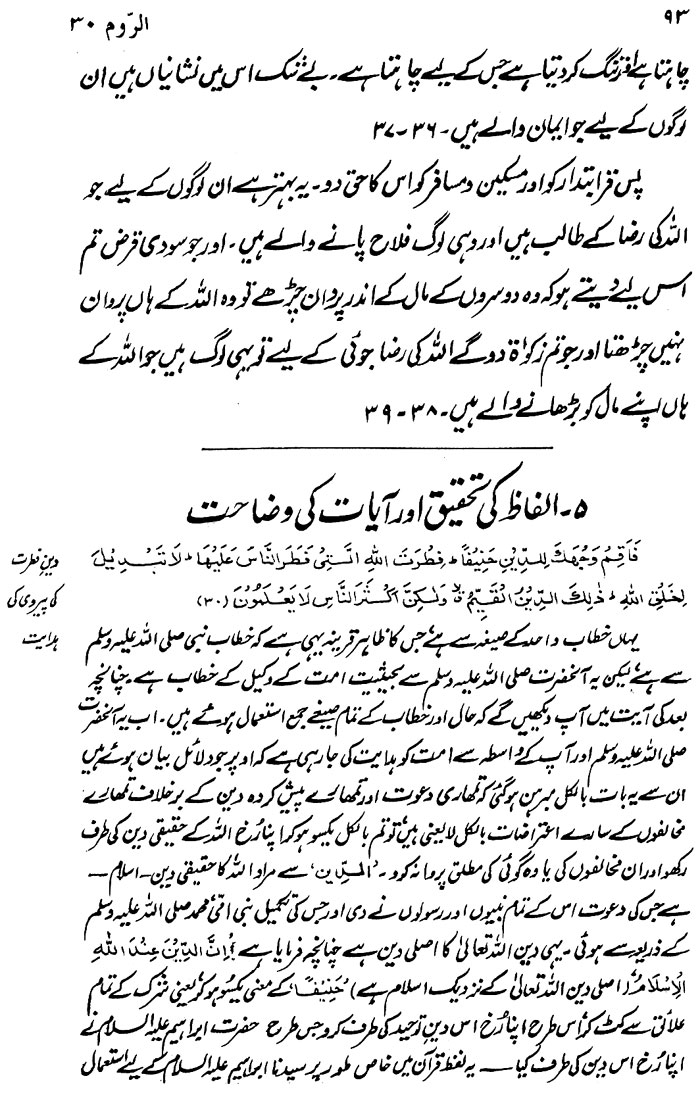 ۹۳
الرّوم ۳۰
چاہتا ہے اور تنگ کر دیتا ہے جس کے لیے چاہتا ہے۔ بے شک اس میں نشانیاں ہیں ان
لوگوں کے لیے جو ایمان والے ہیں۔ ۳۶-۳۷
پس قرابتدار کو اور مسکین و مسافر کو اس کا حق دو۔ یہ بہتر ہے ان لوگوں کے لیے جو
اللہ کی رضا کے طالب ہیں اور وہی لوگ فلاح پانے والے ہیں۔ اور جو سودی قرض تم
اس لیے دیتے ہو کہ وہ دوسروں کے مال کے اندر پروان چڑھے تو وہ اللہ کے ہاں پروان
نہیں چڑھتا اور جو تم زکوٰۃ دو گے اللہ کی رضا جوئی کے لیے تو یہی لوگ ہیں جو اللہ کے
ہاں اپنے مال کو بڑھانے والے ہیں۔ ۳۸-۳۹
۵۔ الفاظ کی تحقیق اور آیات کی وضاحت
فَاَقِمْ وَجْهَكَ لِلدِّيْنِ حَنِيْفًا ؕ فِطْرَتَ اللّٰهِ الَّتِيْ فَطَرَ النَّاسَ عَلَيْهَا ؕ لَا تَبْدِيْلَ
لِخَلْقِ اللّٰهِ ؕ ذٰلِكَ الدِّيْنُ الْقَيِّمُ ۙ وَلٰكِنَّ اَكْثَرَ النَّاسِ لَا يَعْلَمُوْنَ (۳۰)
دینِ فطرت
کی پیروی کی
ہدایت
یہاں خطاب واحد کے صیغہ سے ہے جس کا ظاہر قرینہ یہی ہے کہ خطاب نبی صلی اللہ علیہ وسلم
سے ہے لیکن یہ آنحضرت صلی اللہ علیہ وسلم سے بحیثیت امت کے وکیل کے خطاب ہے۔ چنانچہ
بعد کی آیت میں آپ دیکھیں گے کہ حال اور خطاب کے تمام صیغے جمع استعمال ہوئے ہیں۔ اب یہ آنحضرت
صلی اللہ علیہ وسلم اور آپ کے واسطہ سے امت کو ہدایت کی جا رہی ہے کہ اوپر جو دلائل بیان ہوئے ہیں
ان سے یہ بات بالکل مبرہن ہو گئی کہ تمھاری دعوت اور تمھارے پیش کردہ دین کے برخلاف تمھارے
مخالفوں کے سارے اعتراضات بالکل لا یعنی ہیں، تو تم بالکل یکسو ہو کر اپنا رخ اللہ کے حقیقی دین کی طرف
رکھو اور ان مخالفوں کی یاوہ گوئی کی مطلق پروا نہ کرو۔ 'الدِّيْن' سے مراد اللہ کا حقیقی دین – اسلام –
ہے جس کی دعوت اس کے تمام نبیوں اور رسولوں نے دی اور جس کی تکمیل نبی امّی محمد صلی اللہ علیہ وسلم
کے ذریعہ سے ہوئی۔ یہی دین اللہ تعالیٰ کا اصلی دین ہے چنانچہ فرمایا ہے 'اِنَّ الدِّيْنَ عِنْدَ اللّٰهِ
الْاِسْلَامُ' (اصلی دین اللہ تعالیٰ کے نزدیک اسلام ہے) 'حَنِيْفًا' کے معنی یکسو ہو کر یعنی شرک کے تمام
علائق سے کٹ کر اس طرح اپنا رُخ اس دینِ توحید کی طرف کرو جس طرح حضرت ابراہیم علیہ السلام نے
اپنا رُخ اس دین کی طرف کیا — یہ لفظ قرآن میں خاص طور پر سیدنا ابراہیم علیہ السلام کے لیے استعمال